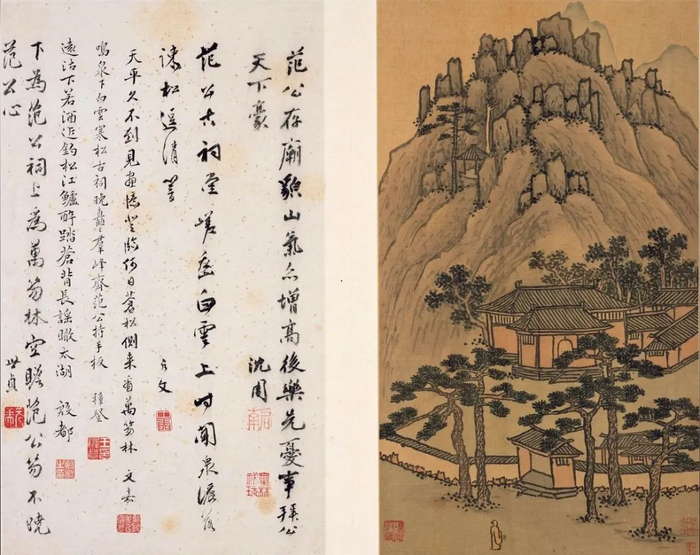 范公存廟貌山氣亦增高後樂先憂事拜公
天下豪 沈周
范公古祠堂嵯峨白雲上時聞泉落
疎松逗清響 文
天平久不到見畫憶登臨何日蒼松側來看萬笏林 文嘉
鳴泉下白雲寒松古祠晚矗矗羣峰齊范公持手板 穉登
遠沽下若酒近釣松江鱸醉踏蒼背長謠瞰太湖 殷都
下為范公祠上為萬笏林空瞻范公笏不曉
范公心 世貞